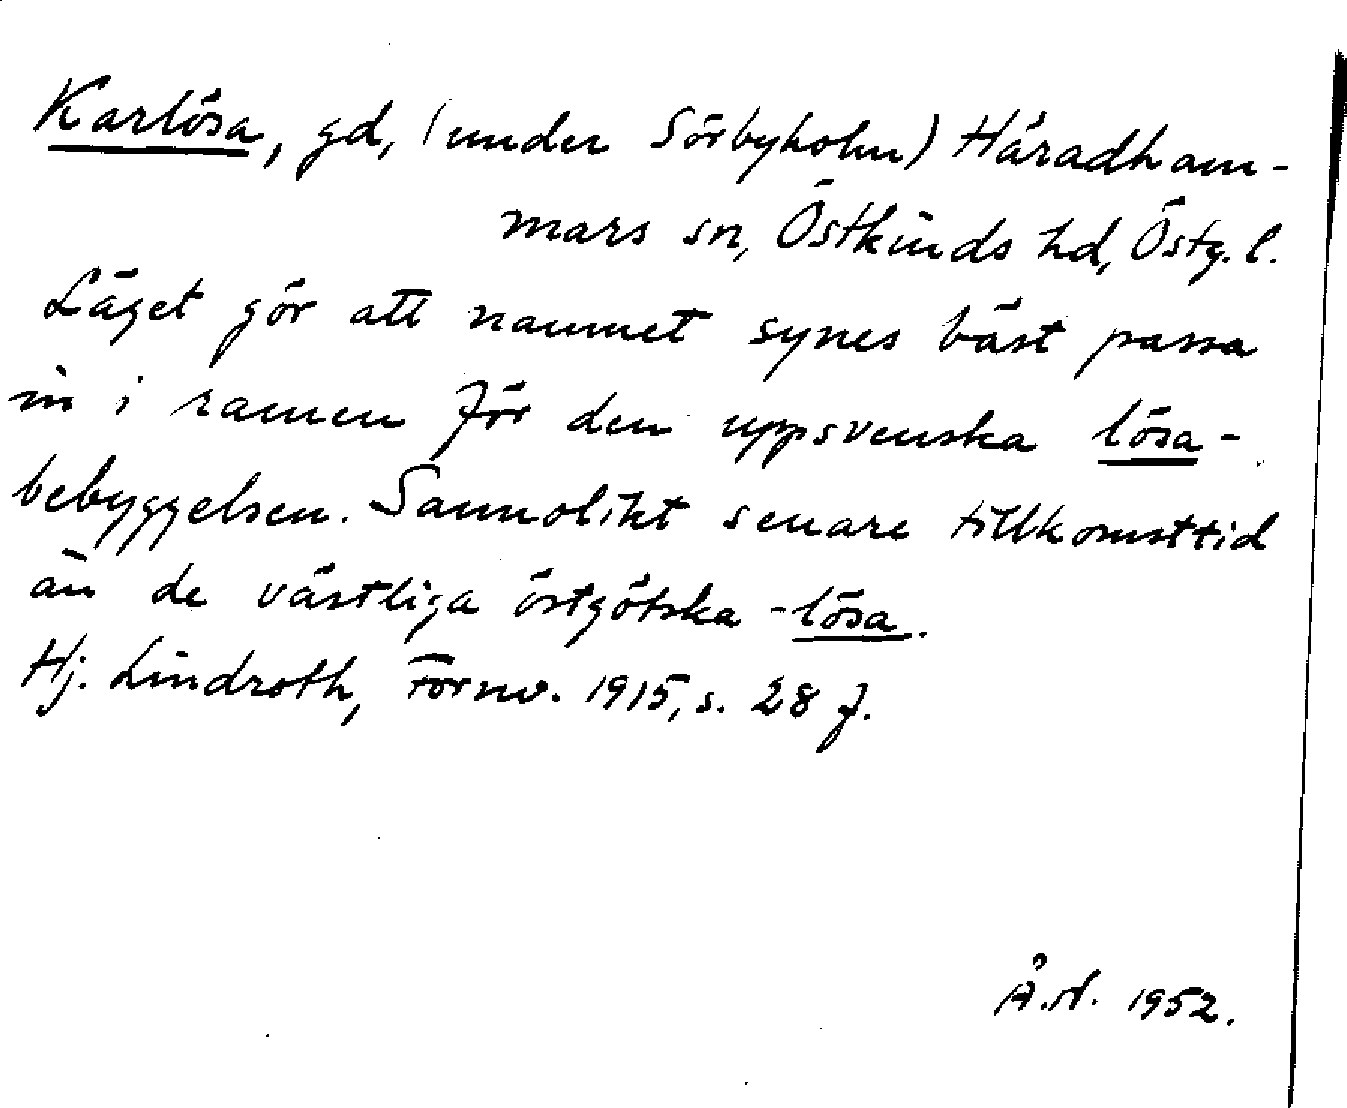 Karlösa, gd, (under Sörbyholm) Häradham-
mars sn, Östkinds hd, Östg. l.
Läget gör att namnet synes bäst passa
in i ramen för den uppsvenska lösa-
bebyggelsen. Sannolikt senare tillkomsttid
än de västliga östgötska -lösa.
Hj. Lindroth, Fornv. 1915, s. 28 f.
1952.